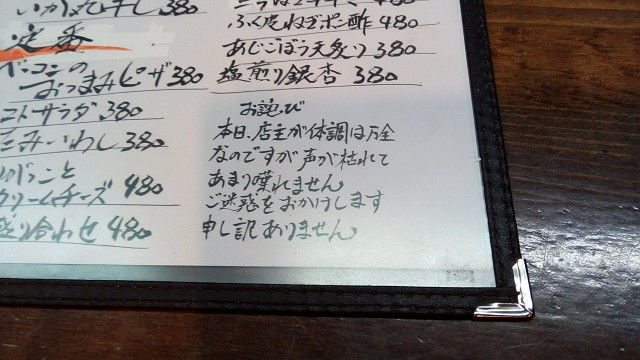 いか丸干し 380
定番
ベーコンの
おつまみピザ 380
トサラダ 380
いわし 380
がっこと
クリームチーズ 480
盛り合わせ 480
480
ふく皮ねぎポン酢 480
あじごぼう天炙り 380
塩煎り銀杏 380
お詫び
本日、店主が体調は万全
なのですが声が枯れて
あまり喋れません。
ご迷惑をおかけします
申し訳ありません。